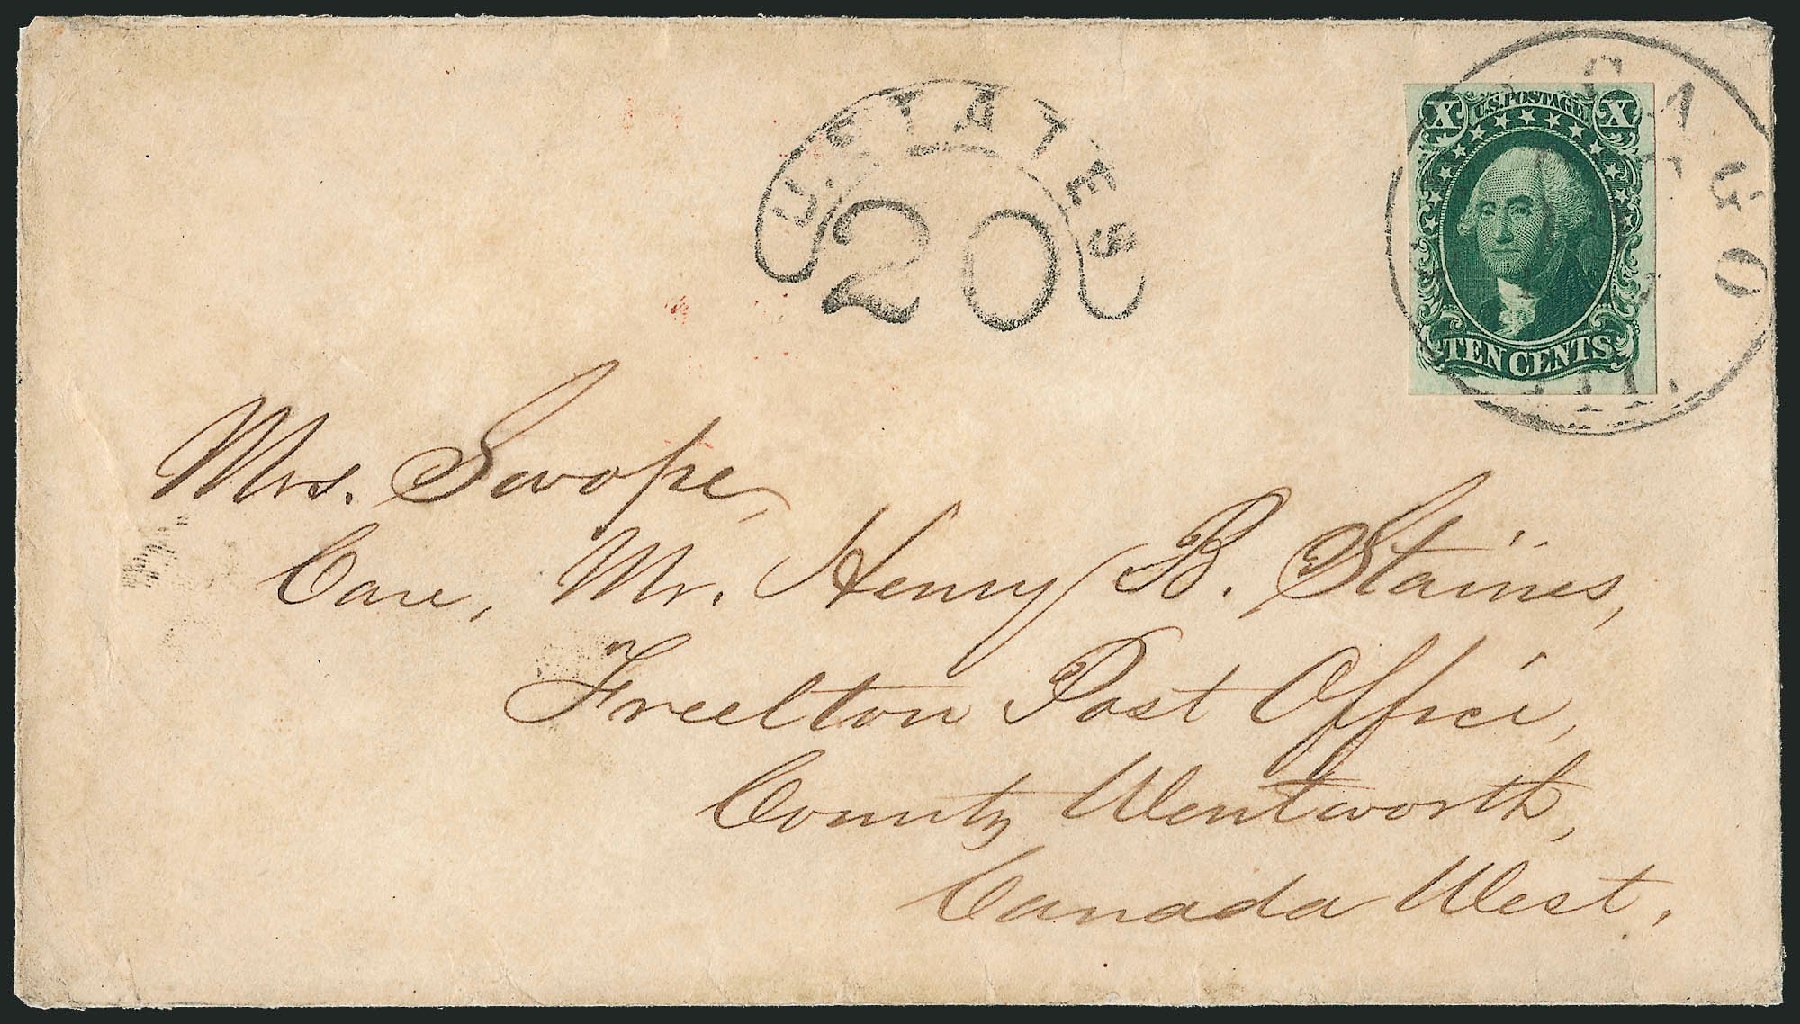 U. STATES
20
X U.S. POSTAGE X
TEN CENTS
CAGO
ILL.
Mrs. Swope,
Care, Mr. Henry B. Staines,
Freelton Post Office,
County Wentworth,
Canada West.